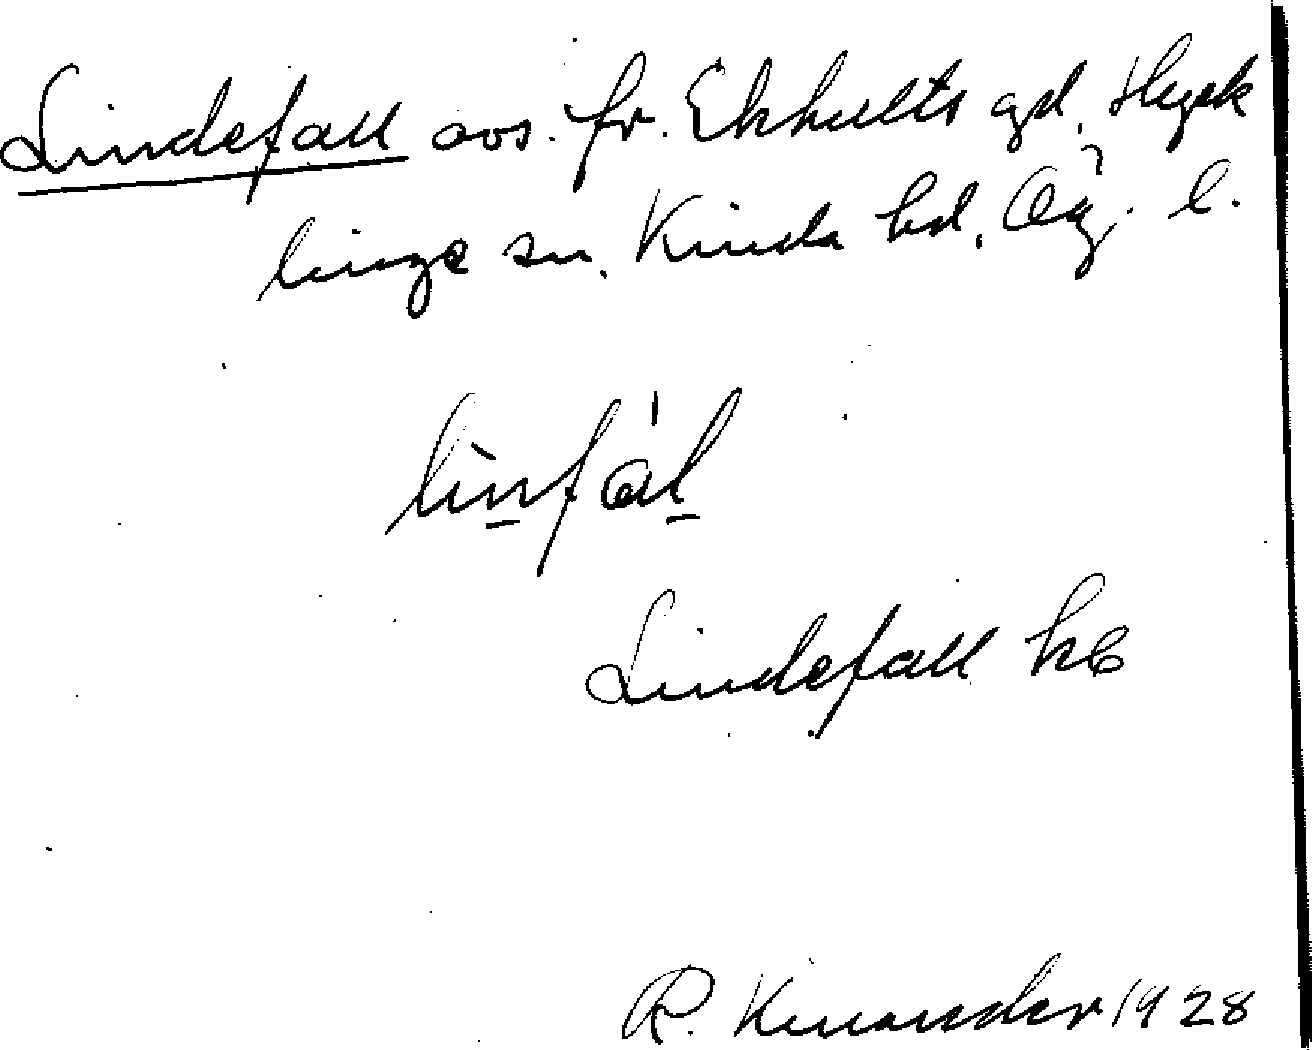 Lindefall avs. fr. Ekhults gd, Hyck
linge sn, Kinda hd, Ög. l.
lìnfál
Lindefall kb
R. Kinander 1928